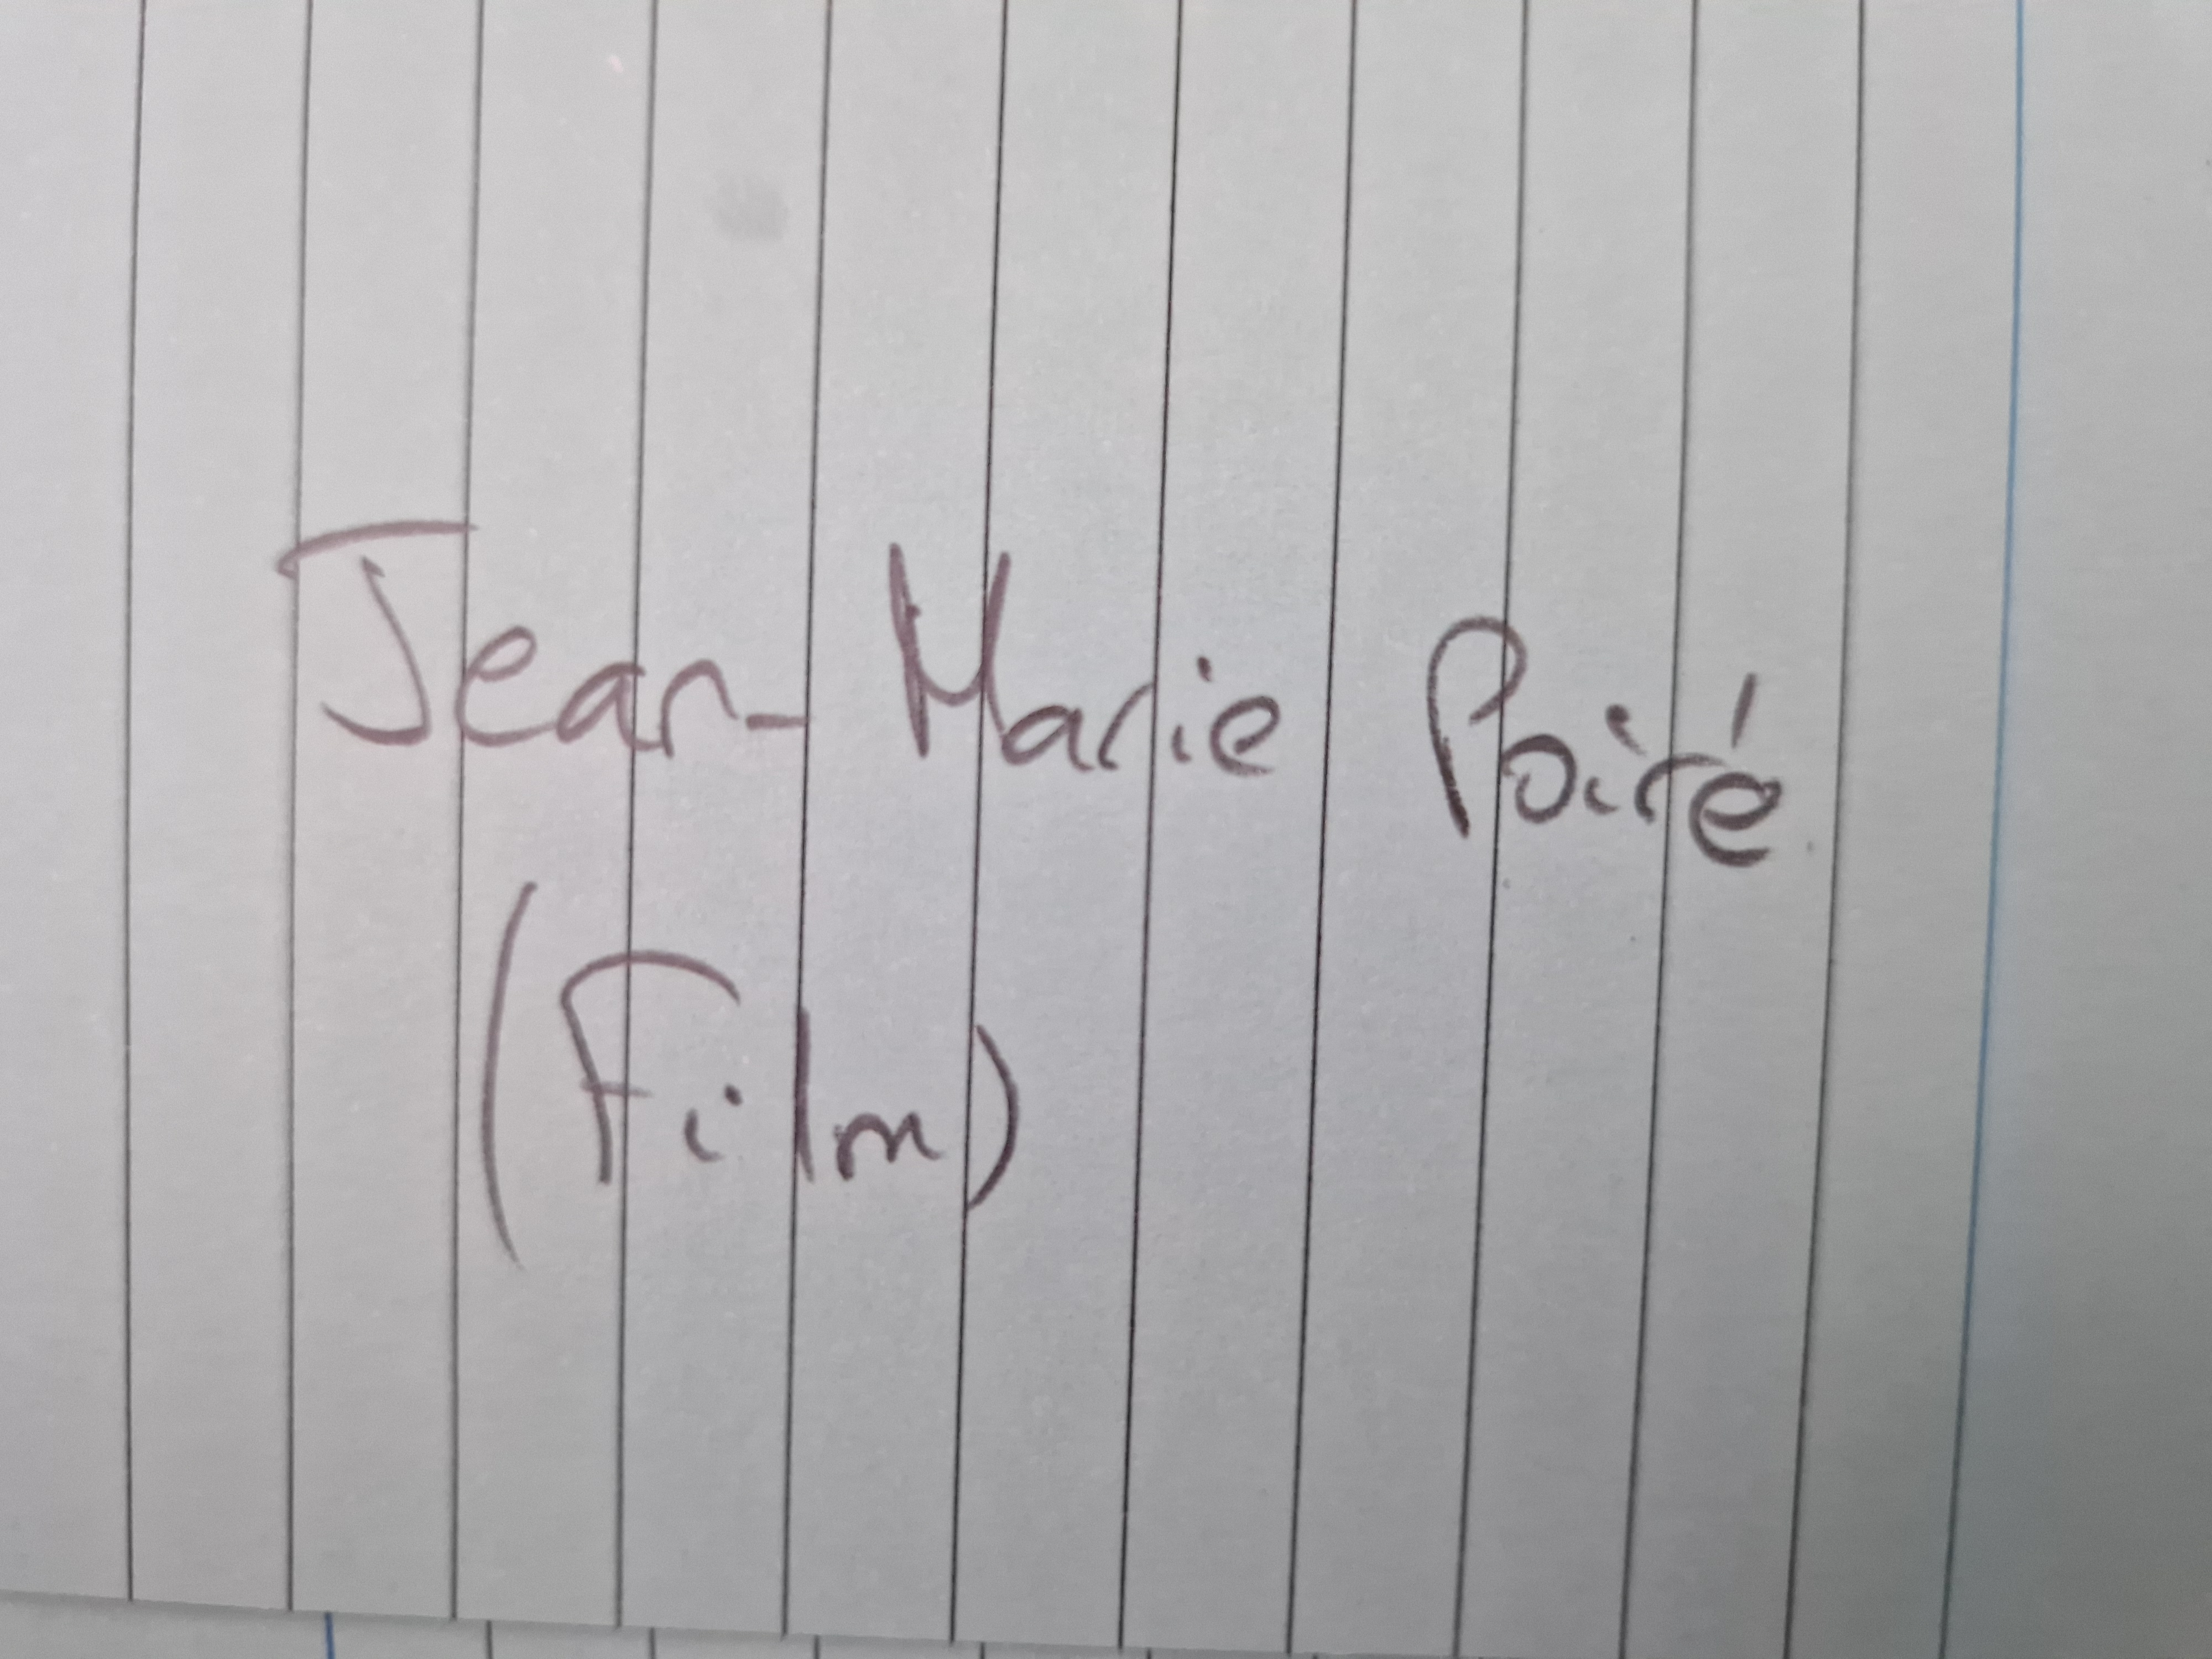 Jean-Marie Poiré
(Film)